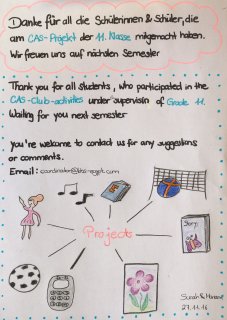 Danke für all die Schülerinnen & Schüler, die
am CAS-Projekt der 11. Klasse mitgemacht haben.
Wir freuen uns auf nächsten Semester
Thank you for all students, who participated in the
CAS-Club-activities under supervision of Grade 11.
Waiting for you next semester
you're welcome to contact us for any suggestions
or comments.
Email:
Projects
Story:
27.11.16